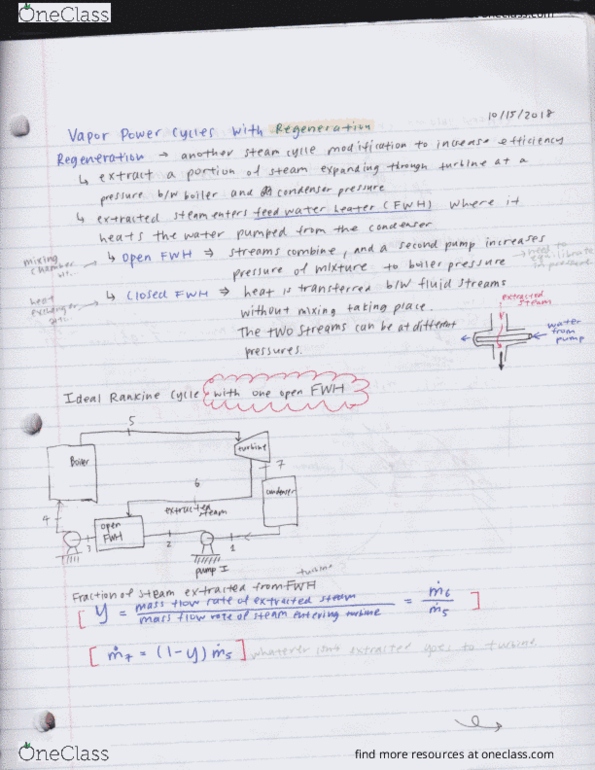 OneClass
find more resources at oneclass.com
10/15/2018
Vapor Power Cycles with Regeneration
Regeneration → another steam cycle modification to increase efficiency
↳ extract a portion of steam expanding through turbine at a
pressure b/w boiler and condenser pressure
↳ extracted steam enters feed water heater (FWH) where it
heats the water pumped from the condenser
mixing
chamber
↳ Open FWH ⇒ streams combine, and a second pump increases
pressure of mixture to boiler pressure → need to
equilibrate
in pressure
heat
exchanger
↳ Closed FWH ⇒ heat is transferred b/w fluid streams
without mixing taking place.
The two streams can be at different
pressures.
extracted
steam
water
from
pump
Ideal Rankine Cycle with one open FWH
5
Boiler
turbine
7
6
extracted steam
condenser
4
open
FWH
3
2
1
pump I
turbine
Fraction of steam extracted from FWH
[ y = mass flow rate of extracted steam / mass flow rate of steam entering turbine = ṁ6 / ṁ5 ]
[ ṁ7 = (1-y) ṁ5 ] whatever isn't extracted goes to turbine
OneClass
find more resources at oneclass.com